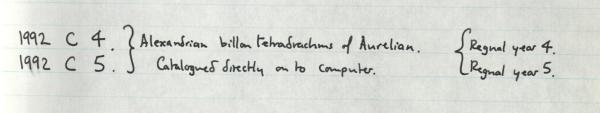 1992 C 4. } Alexandrian billon tetradrachms of Aurelian. { Regnal year 4.
1992 C 5. } Catalogued directly on to computer. { Regnal year 5.